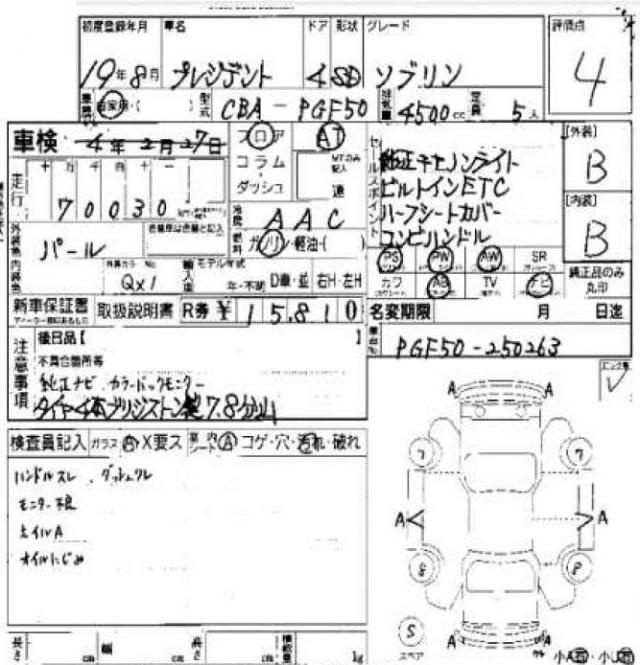 初度登録年月 車名 ドア 形状 グレード 評価点
19年8月 プレジデント 4 SD ソブリン 4
車歴 自家用・( ) 型式 CBA-PGF50 排気量 4500cc 定員 5人
車検 4年2月27日 フロア AT
コラム・ダッシュ MTのみ記入 速
セールスポイント
純正キセノンライト
ビルトインETC
ハーフシートカバー
コンビハンドル
[外装] B
[内装] B
走行 十万千百十一
70030
冷房 AAC
燃料 ガソリン・軽油・( )
外装色 パール
内装色 外装カラーNo. QX1 輸入車 モデル年式 年・不明 D車・並 右H・左H
PS PW AW SR
カワ AB TV ナビ
純正品のみ丸印
新車保証書 取扱説明書 R券 ¥ 15,810
名変期限 月 日迄
車台No. PGF50-250263
注意事項 後日品【 】
不具合箇所等
純正ナビ カラーバックモニター
タイヤ4本ブリジストン製7.8分山
検査員記入 ガラス A・X要ス 内 シート A コゲ・穴・汚れ・破れ
ハンドルスレ ダッシュワレ
モニター不良
ホイルA
オイルにじみ
A A
7 7
A A
8 8
S
スペア
A A
小A 小U
長さ cm 幅 cm 高さ cm 積載量 kg